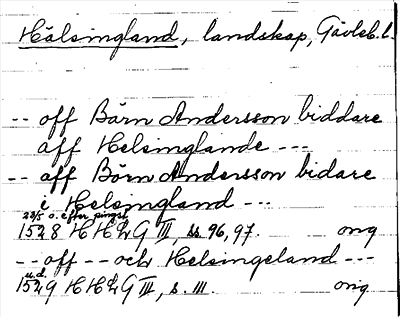 Hälsingland, landskap, Gävleb. l.
-- off Börn Andersson biddare
aff Helsinglande ---
-- aff Börn Andersson bidare
i Helsingland ---
23/5 o. efter pingst
1528 HHLG III, ss. 96, 97. orig
-- off -- och Helsingeland ---
u.d.
1529 HHLG III, s. 111. orig